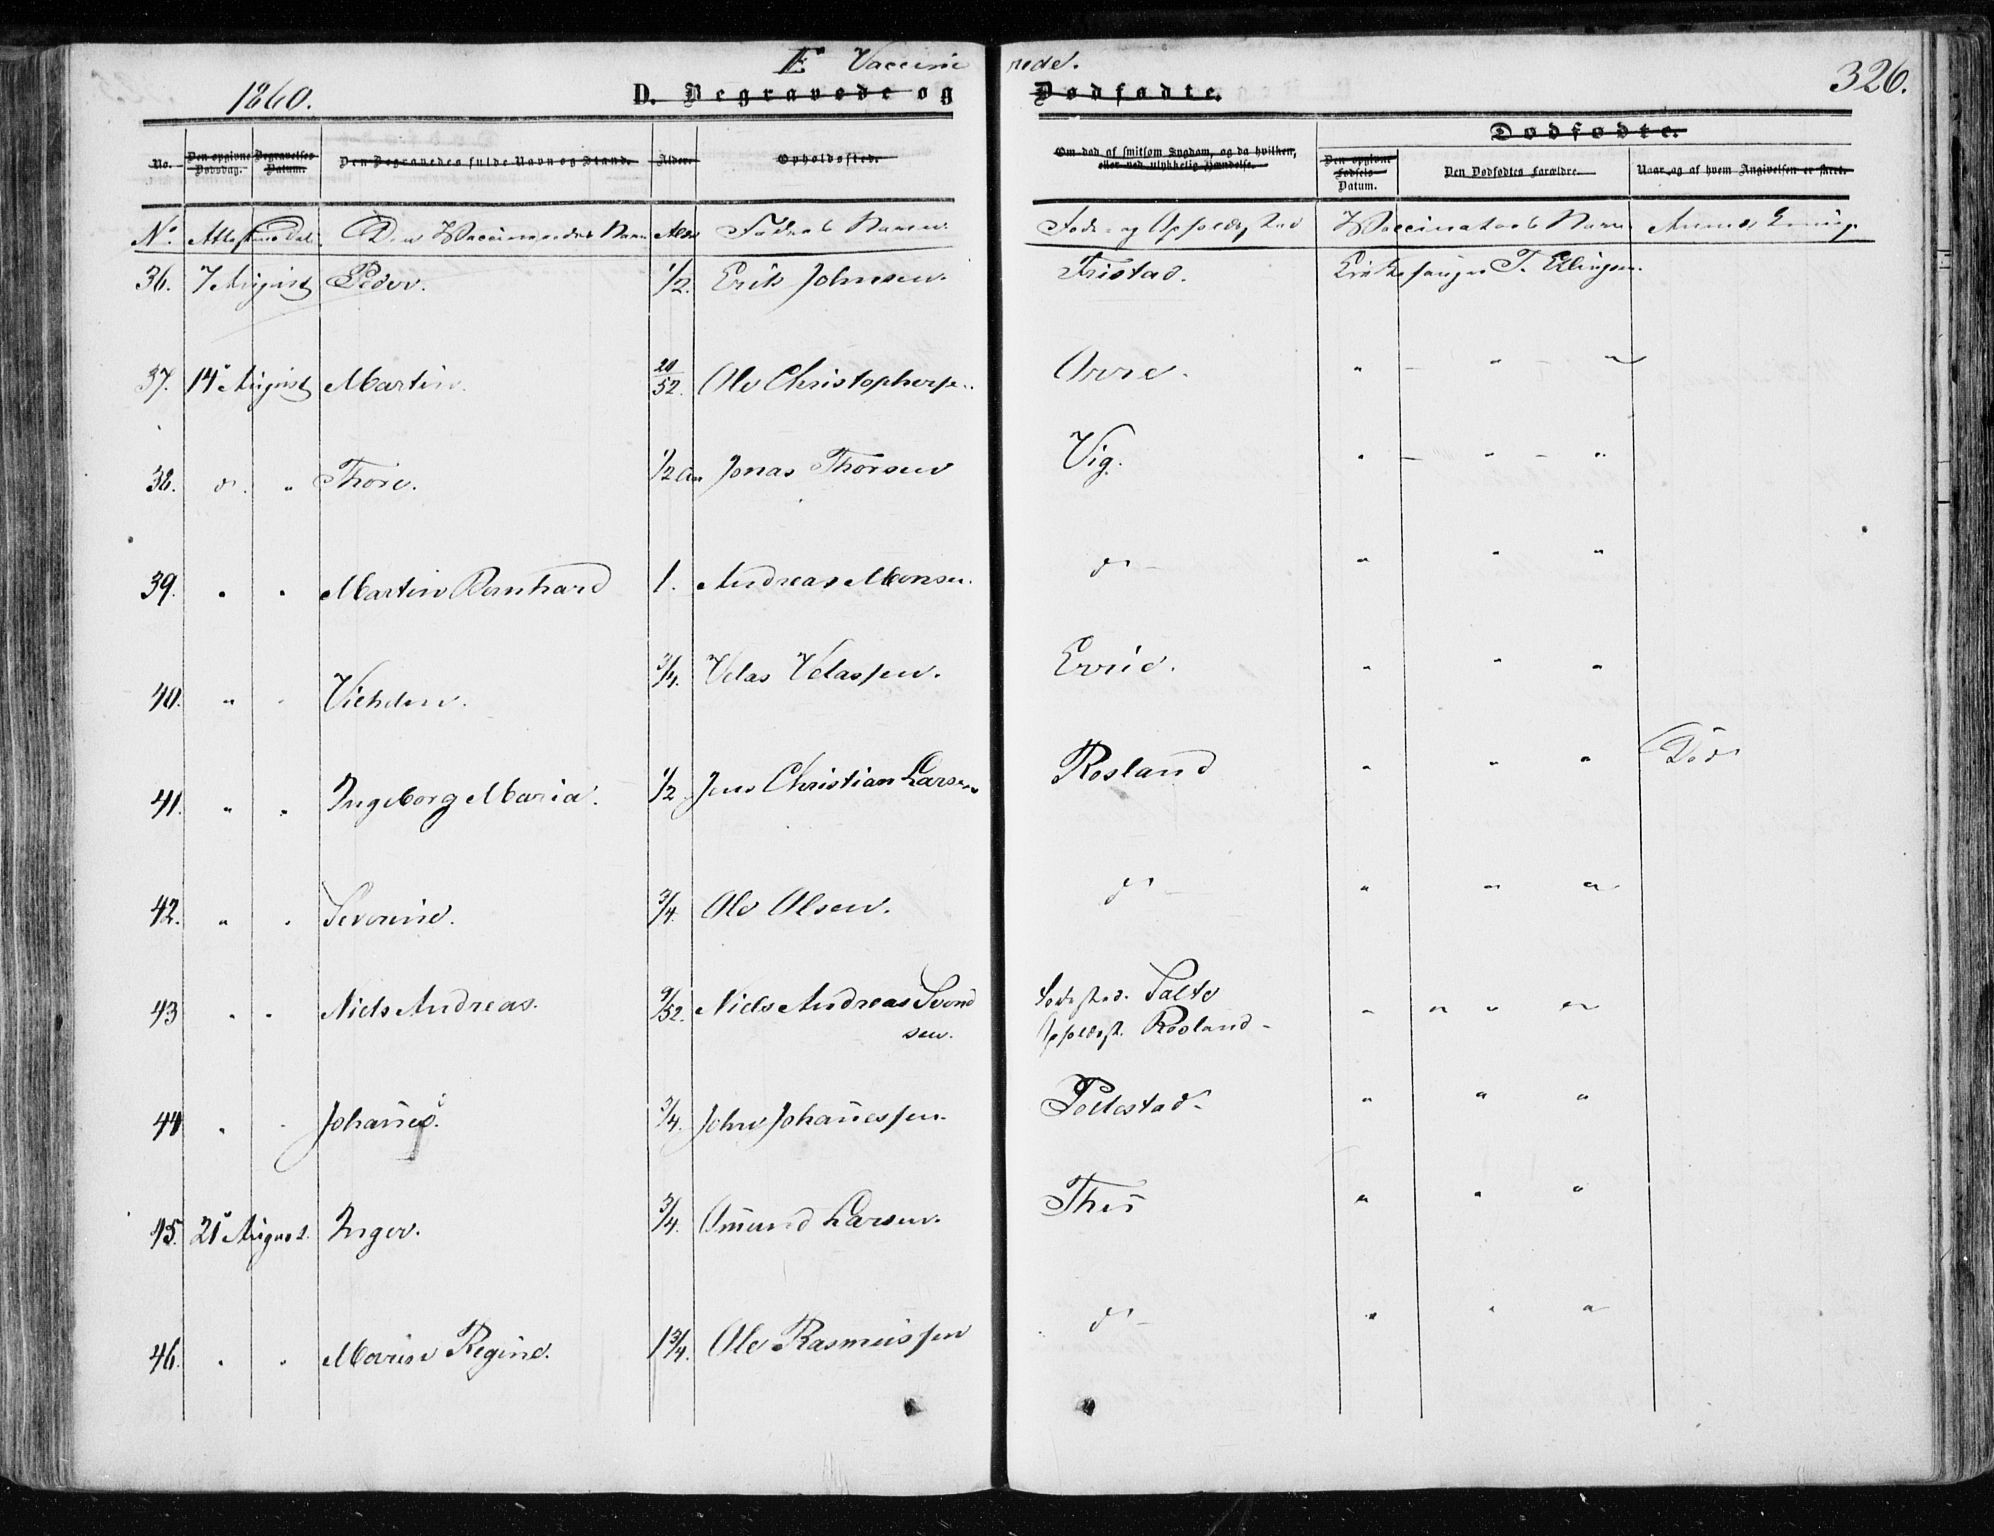 E Vaccinerede.
326.
1860.
D. Begravede og Dødfødte.
Dødfødte.
No. Den opgivne Dødsdag. Begravelses Datum. Den Begravedes fulde Navn og Stand. Alder. Opholdssted. Om død af smitsom Sygdom, og da hvilken, eller ved ulykkelig Hændelse. Den opgivne Fødsels Datum. Den Dødfødtes Forældre. Naar og af hvem Angivelsen er skeet.
No. Attestens Dat. Den Vaccineredes Navn Alder Faderens Navn Føde- og Opholdssted Vaccinateurens Navn
36. 7 August Peder. 1/2. Erik Johnsen. Tristad. Kirkesanger T. Ellingsen.
37. 14 August Martin. 20/52. Ole Christophers. Orre. " - " - "
38. do. " Thore. 1/2 Aar Jonas Thorsen Vig. " - " - "
39. " " Martin Bernhard 1. Andreas Monsen. do - " " "
40. " " 3/4. Velas Velassen. " " "
41. " " Ingeborg Maria. 1/2. Jens Christian Larsen Rosland " " " Død
42. " " Severine. 3/4. Ole Olsen. do - " " "
43 " " Niels Andreas. 9/52. Niels Andreas Svend Fødested. Salte
sen. Opholdsst. Rosland - " " " "
44 " " Johanes. 3/4. John Johanessen. Pollestad. " " "
45. 21 August. Inger. 3/4. Osmund Larsen. Thu " " "
46. " " Regine. 1 3/4. Ole Rasmussen do - " " "